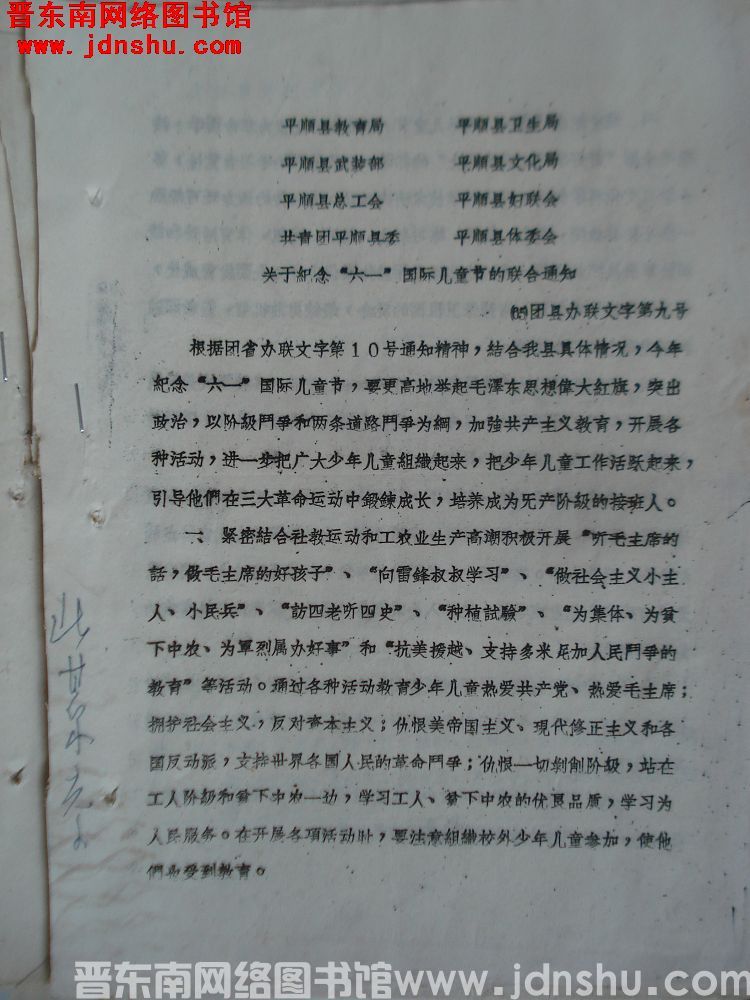 晋东南网络图书馆
www.jdnshu.com
平順县教育局 平順县卫生局
平順县武装部 平順县文化局
平順县总工会 平順县妇联会
共青团平順县委 平順县体委会
关于紀念“六一”国际儿童节的联合通知
(65)团县办联文字第九号
根据团省办联文字第10号通知精神，結合我县具体情况，今年
紀念“六一”国际儿童节，要更高地举起毛澤东思想偉大紅旗，突出
政治，以阶級鬥爭和两条道路鬥爭为綱，加強共产主义教育，开展各
种活动，进一步把广大少年儿童組織起来，把少年儿童工作活跃起来，
引导他們在三大革命运动中鍛鍊成长，培养成为无产阶級的接班人。
一、紧密結合社教运动和工农业生产高潮积极开展“听毛主席的
話，做毛主席的好孩子”、“向雷鋒叔叔学习”、“做社会主义小主
人、小民兵”、“訪四老听四史”、“种植試驗”、“为集体、为貧
下中农、为軍烈属办好事”和“抗美援越、支持多米尼加人民鬥爭的
教育”等活动。通过各种活动教育少年儿童热爱共产党、热爱毛主席；
拥护社会主义，反对資本主义；仇恨美帝国主义、現代修正主义和各
国反动派，支持世界各国人民的革命鬥爭；仇恨一切剝削阶級，站在
工人阶級和貧下中农一边，学习工人、貧下中农的优良品质，学习为
人民服务。在开展各項活动时，要注意組織校外少年儿童参加，使他
們也受到教育。
晋东南网络图书馆www.jdnshu.com